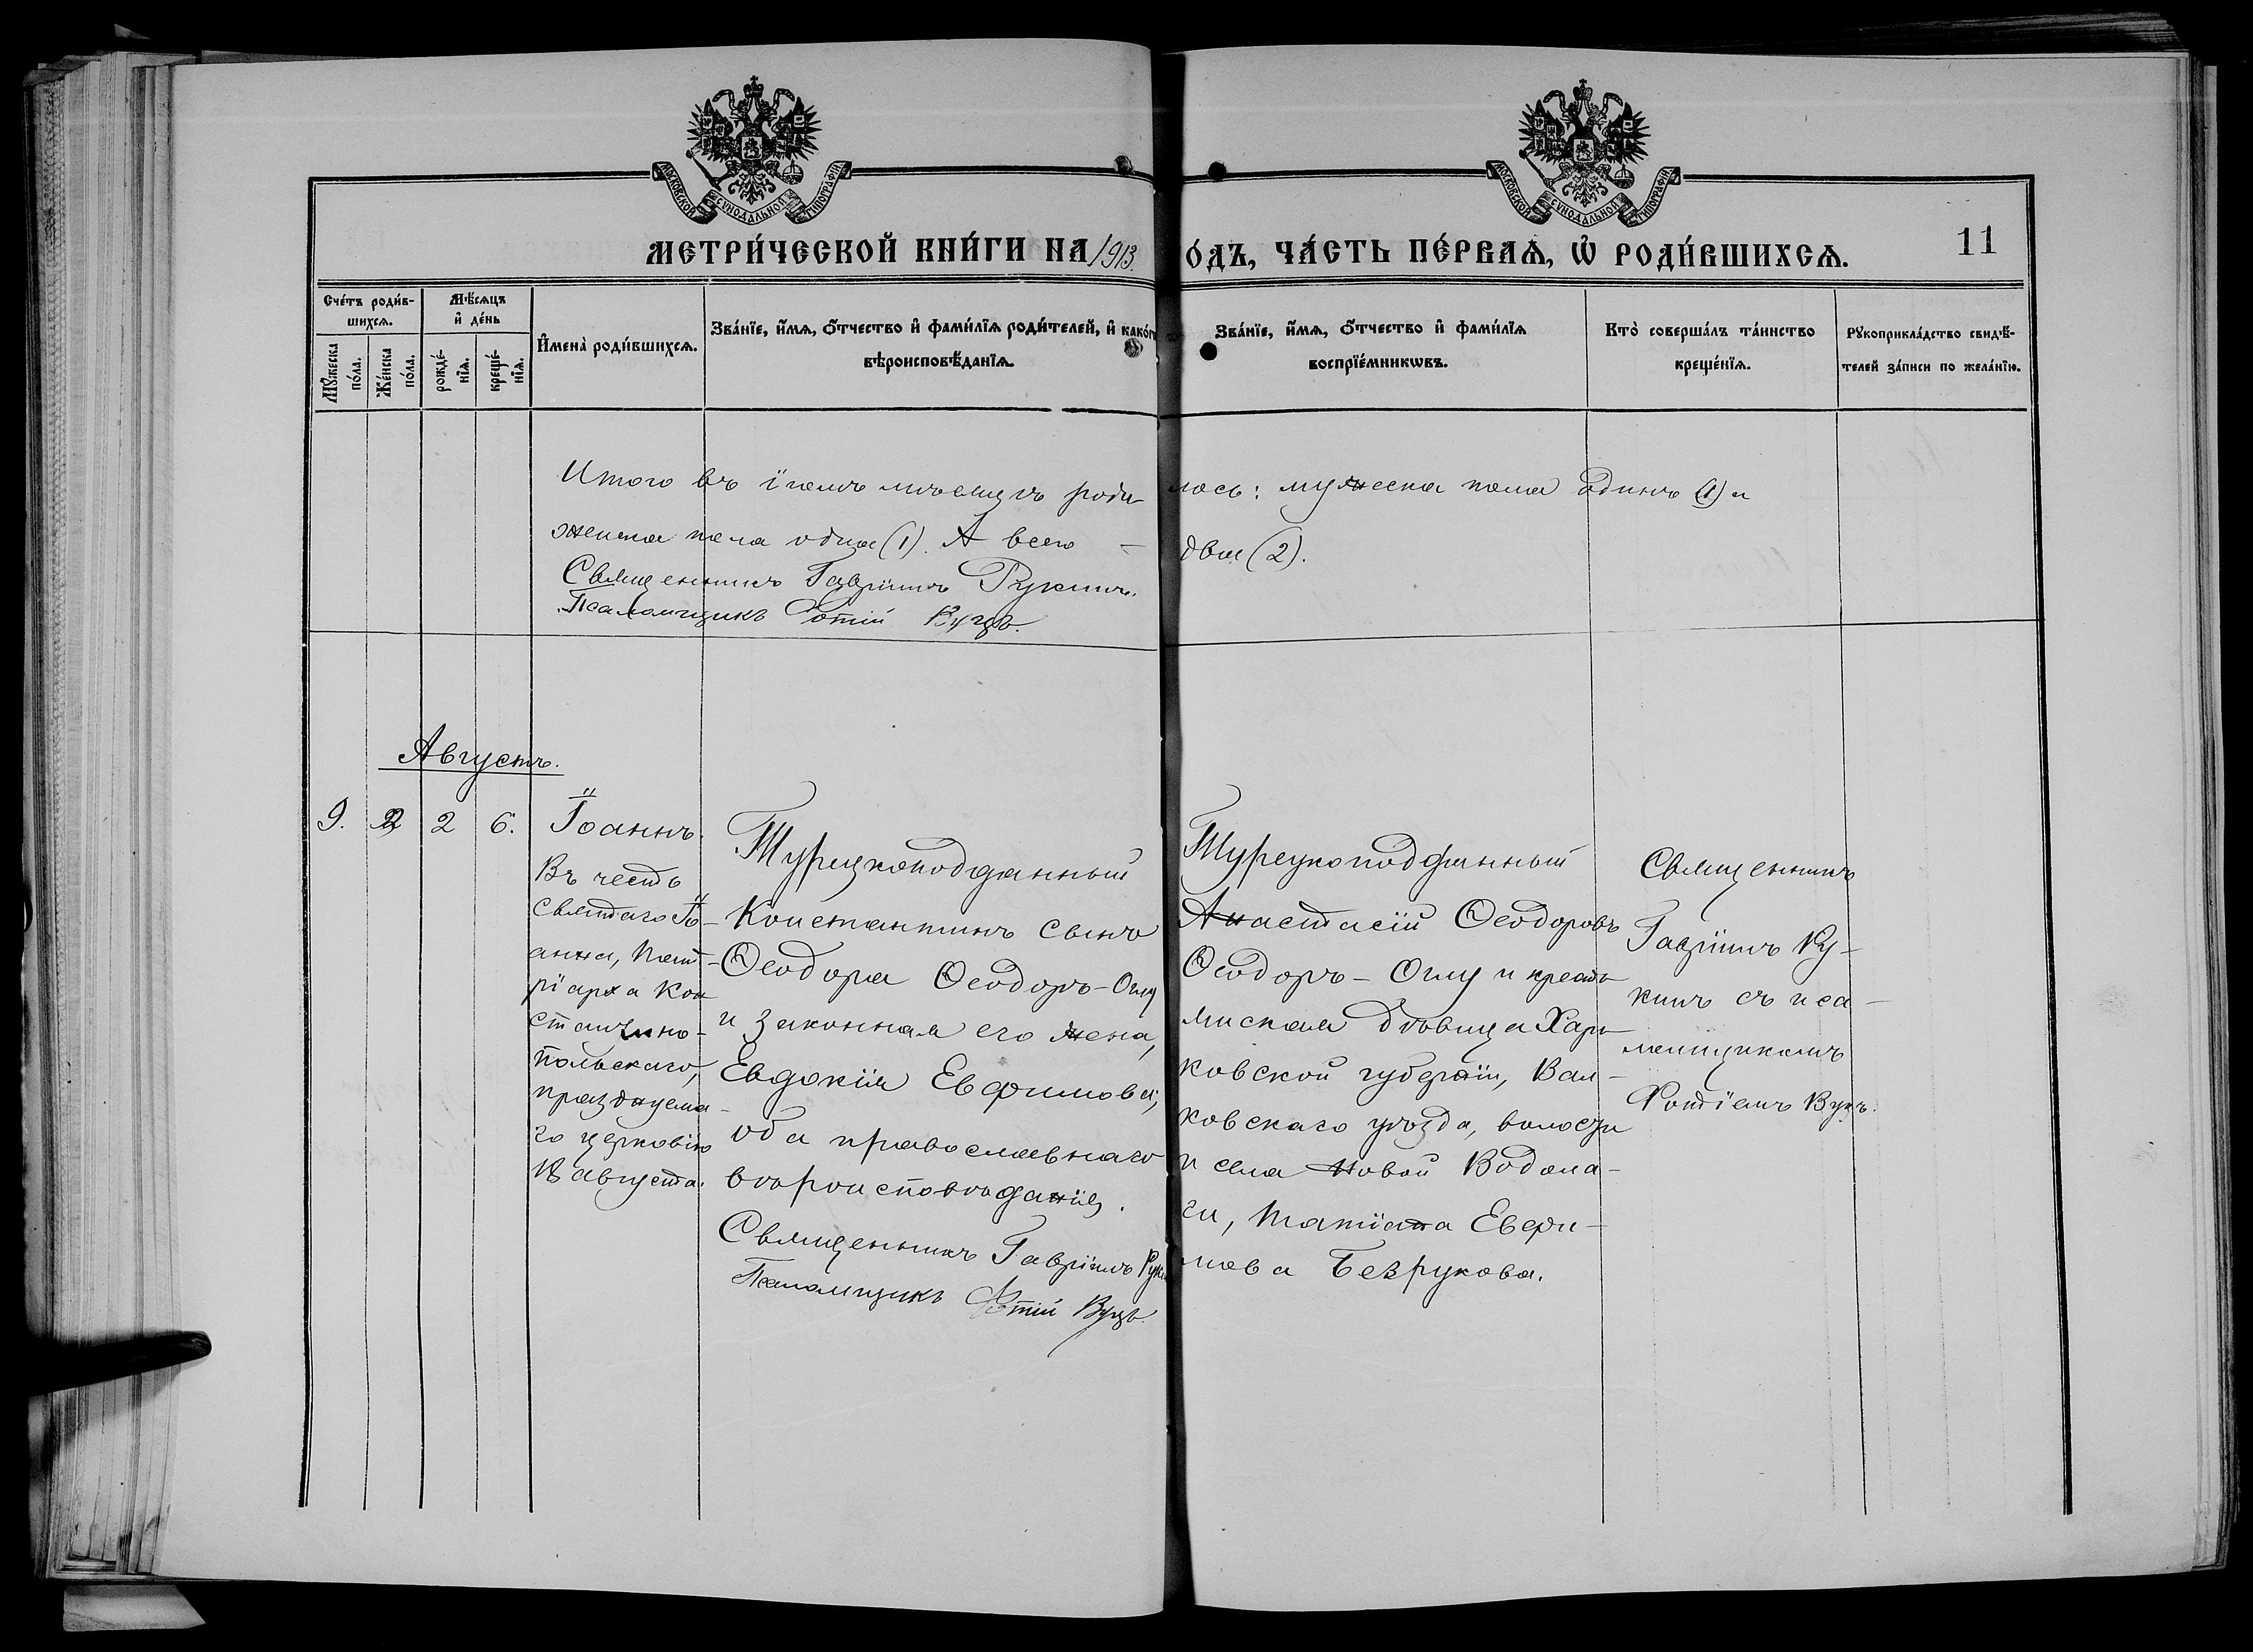 МОСКОВСКОЙ СѴНОДАЛЬНОЙ ТИПОГРАФІИ
МОСКОВСКОЙ СѴНОДАЛЬНОЙ ТИПОГРАФІИ
МЕТРИ́ЧЕСКОЙ КНИ́ГИ НА 1913. О́ДЪ, ЧА́СТЬ ПЕ́РВАѦ, Ѡ҆ РОДИ́ВШИХСѦ.
11
Сче́тъ роди́в-
шихсѧ.
Мѣ́сѧцъ
и҆ де́нь
Мꙋ́жеска
по́ла.
Же́нска
по́ла.
рожде́-
нїѧ.
креще́-
нїѧ.
И҆мена̀ роди́вшихсѧ.
Зва́нїе, и҆́мѧ, ѻ҆́тчество и҆ фами́лїѧ роди́телей, и҆ како́г
вѣроисповѣ́данїѧ.
Зва́нїе, и҆́мѧ, ѻ҆́тчество и҆ фами́лїѧ
воспрїе́мникѡвъ.
Кто̀ соверша́лъ та́инство
креще́нїѧ.
Рꙋкоприкла́дство свидѣ́-
телей за́писи по жела́нїю.
Итого въ іюлѣ мѣсяцѣ роди лось: мужеска пола одинъ (1) и
женска пола одна (1). А всего — два (2).
Священникъ Гавріилъ Рукинъ.
Псаломщикъ Фотій Вуцъ.
Августъ.
9. 2 2 6.
Іоаннъ.
Въ честь
святаго Іо-
анна, Пат-
ріарха Кон
стантино-
польскаго,
празднуема-
го церковію
18 августа.
Турецкоподданный
Константинъ сынъ
Ѳеодора Ѳеодоръ-Оглу
и законная его жена,
Евдокія Евфимова,
оба православнаго
вѣроисповѣданія.
Священникъ Гавріилъ Руки
Псаломщикъ Фотій Вуцъ.
Турецкоподданный
Анастасій Ѳеодоровъ
Ѳеодоръ-Оглу и кресть
янская дѣвица Харь
ковской губерніи, Вал-
ковскаго уѣзда, волости
и села Новой Водола-
ги, Татіана Евфи-
мова Безрукова.
Священникъ
Гавріилъ Ру-
кинъ съ пса-
ломщикомъ
Фотіемъ Вуцъ.